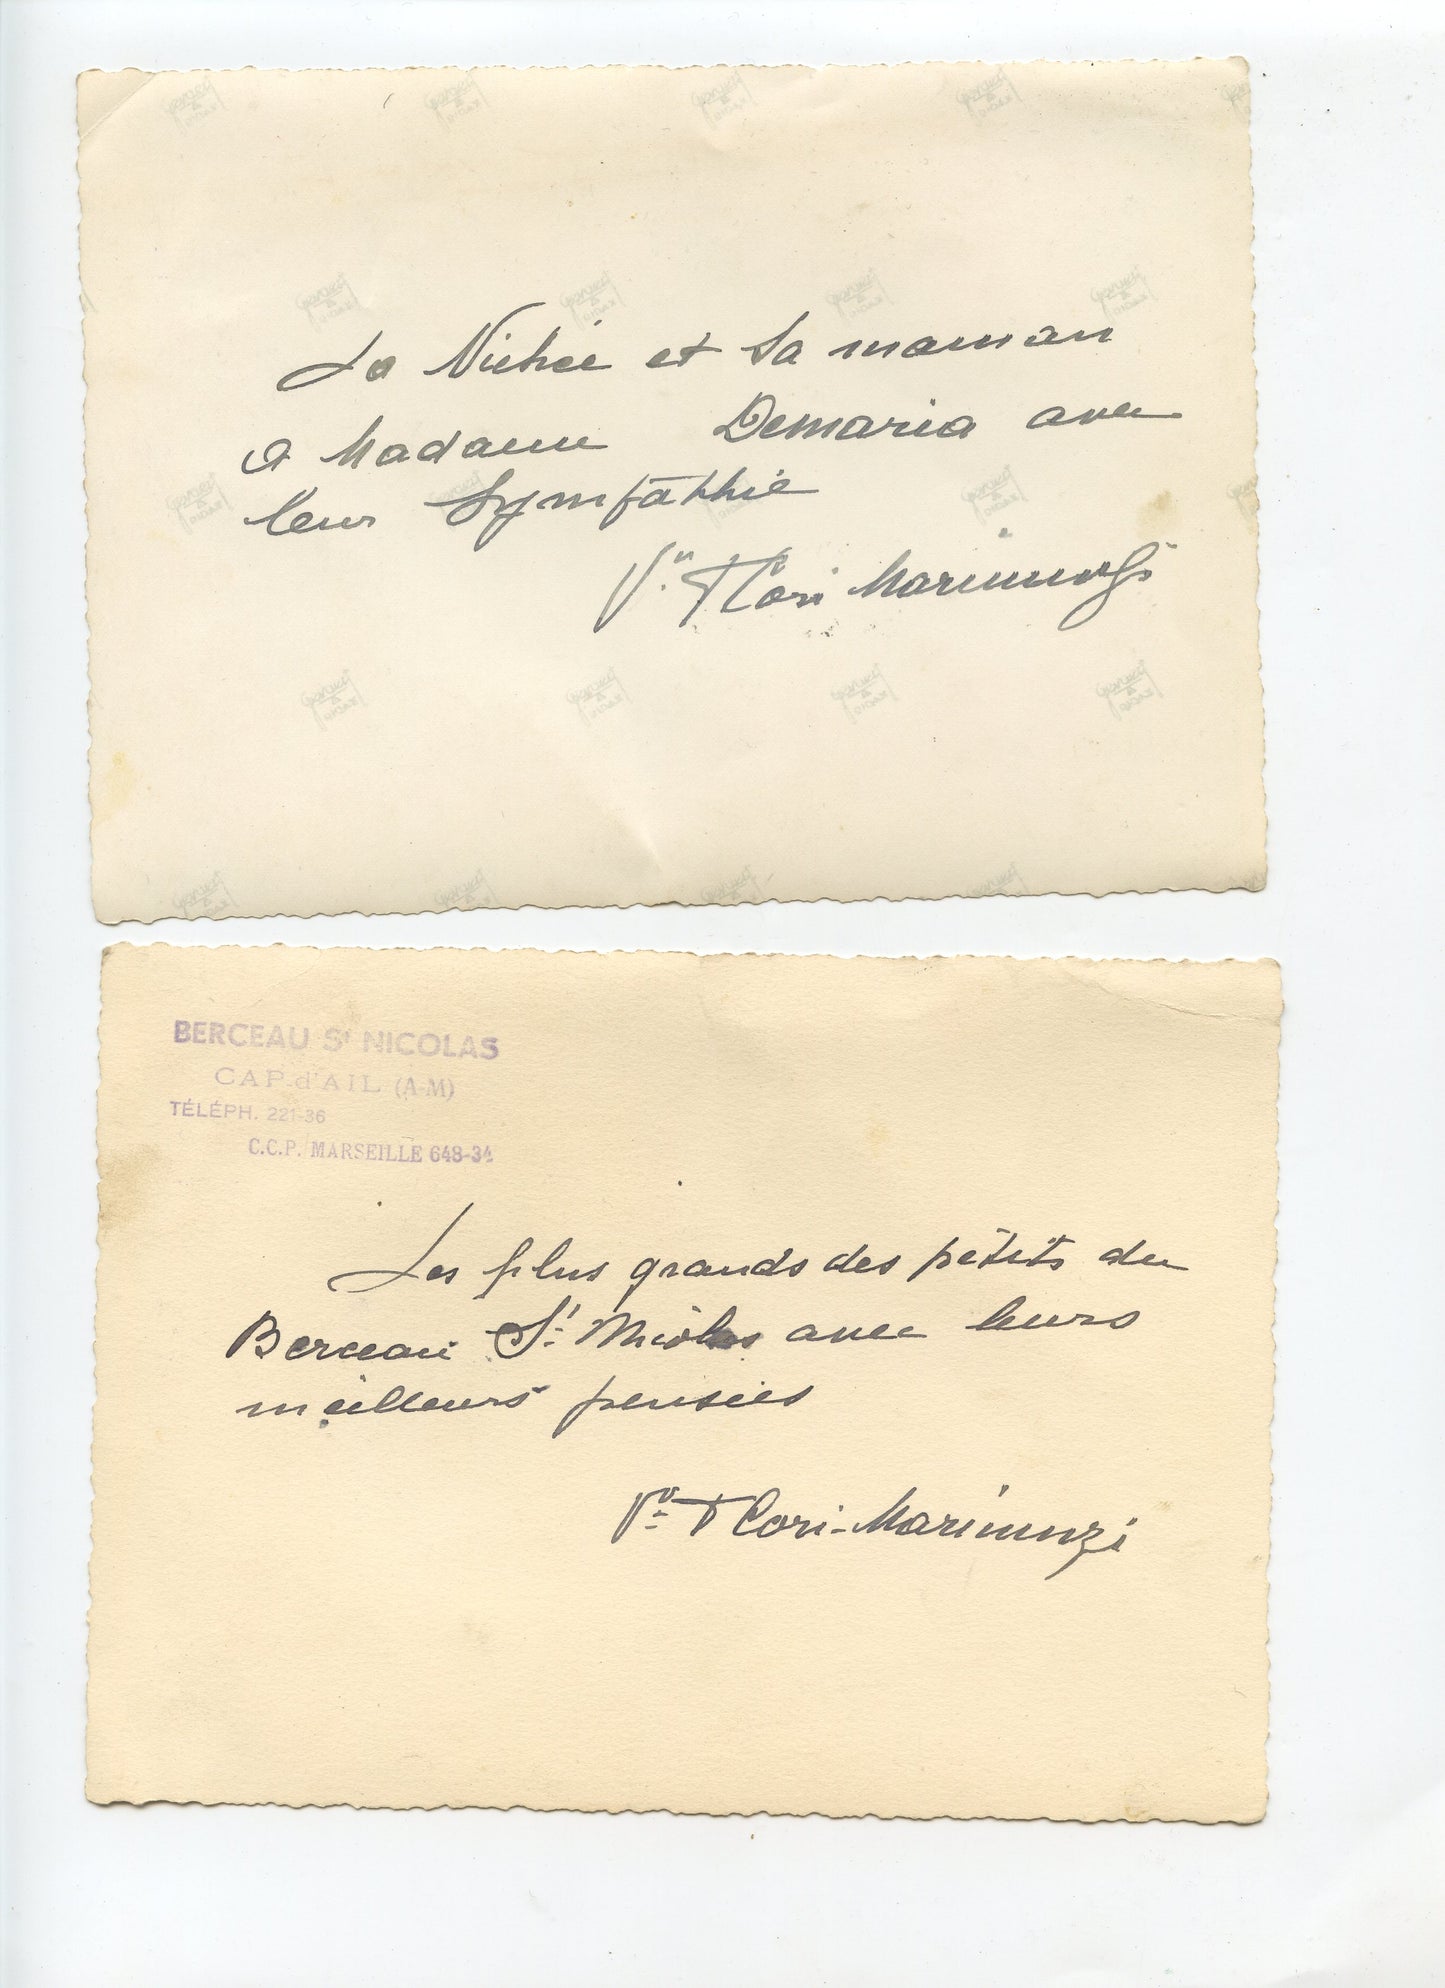 La Nichée et sa maman
a Madame Demaria avec
leur Sympathie
Vve Flori Marimonzi
BERCEAU St NICOLAS
CAP-d'AIL (A-M)
TÉLÉPH. 221-36
C.C.P. MARSEILLE 648-34
Les plus grands des petits du
Berceau St Nicolas avec leurs
meilleurs pensées
Flori-Marimonzi